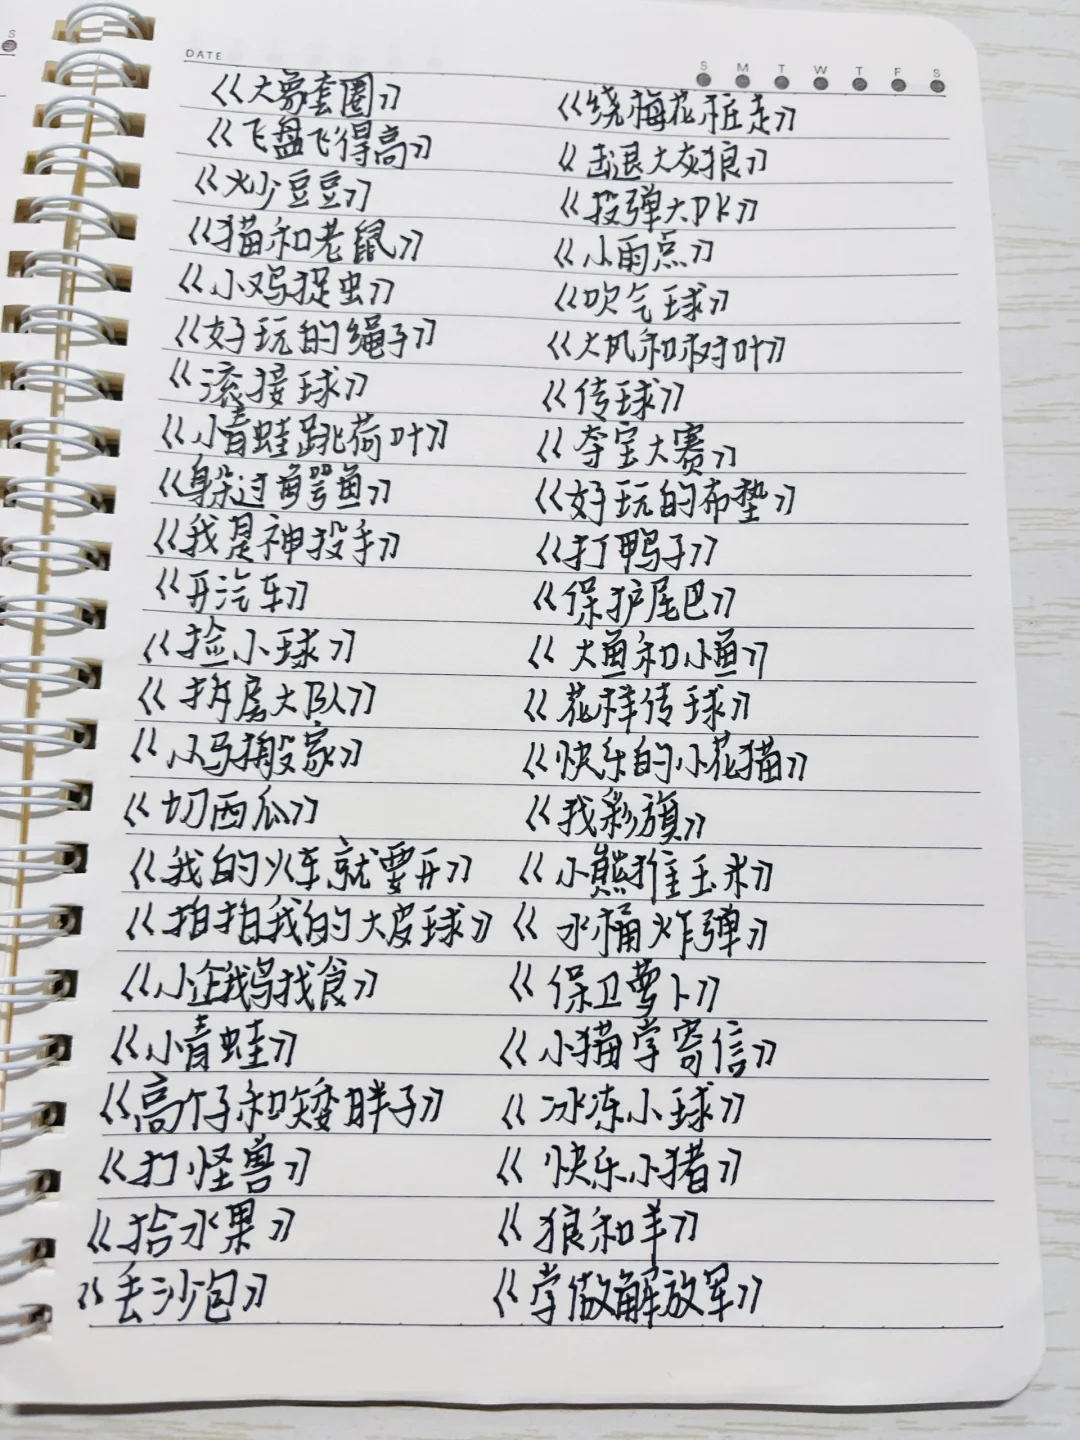 DATE
S M T W T F S
《大象套圈》 《绕梅花桩走》
《飞盘飞得高》 《击退大灰狼》
《火少豆豆》 《投弹大队》
《猫和老鼠》 《小雨点》
《小鸡捉虫》 《吹气球》
《好玩的绳子》 《大风和树叶》
《滚接球》 《传球》
《小青蛙跳荷叶》 《夺宝大赛》
《躲过鳄鱼》 《好玩的布垫》
《我是神投手》 《打鸭子》
《开汽车》 《保护尾巴》
《捡小球》 《大鱼和小鱼》
《拆房大队》 《花样传球》
《小马搬家》 《快乐的小花猫》
《切西瓜》 《找彩旗》
《我的火车就要开》 《小熊推玉米》
《拍拍我的大皮球》 《水桶炸弹》
《小企鹅找食》 《保卫萝卜》
《小青蛙》 《小猫学寄信》
《高个子和矮胖子》 《冰冻小球》
《打怪兽》 《快乐小猪》
《拾水果》 《狼和羊》
《丢沙包》 《学做解放军》